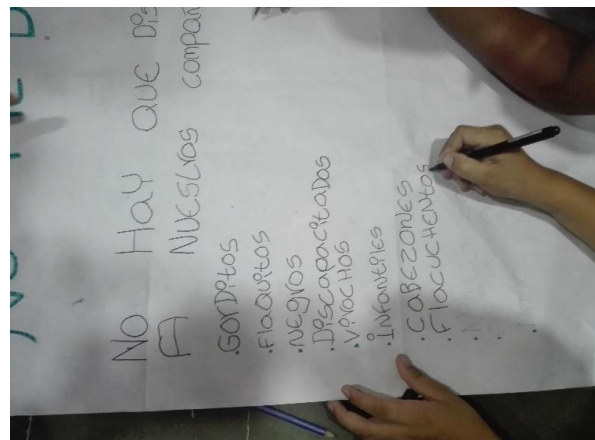 No Hay QUE Dis
A NUESTROS compañ
.GORDitOS
.FlaQuitos
.NEgros
.DiscapacitaDOS
.VirOCHOS
.INFANtiles
.CABEZONES
.FlacucHENtos